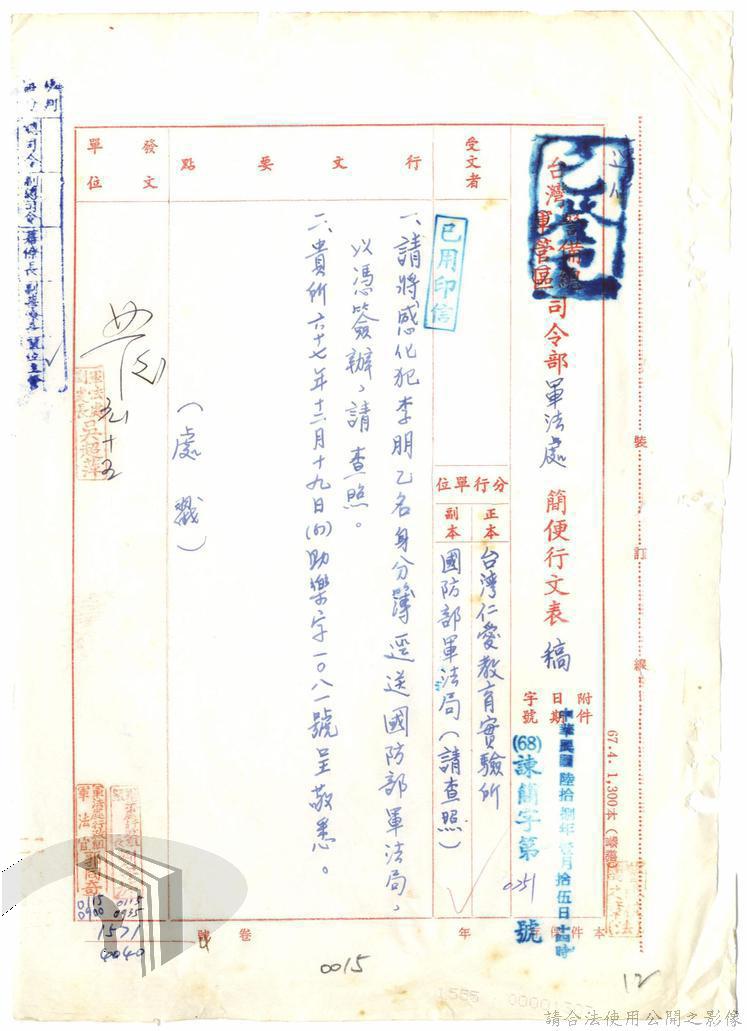 已發
台灣警備總
軍管區
司令部軍法處 簡便行文表 稿
裝
訂
線
67.4. 1,300本
附件
日期
字號
中華民國陸拾捌年壹月拾伍日
(68)諫簡字第0251號
本件保存 年
受文者
分行單位
正本
台灣仁愛教育實驗所
副本
國防部軍法局(請查照)
已用印信
行文要點
一、請將感化犯李明乙名身分簿逕送國防部軍法局,
以憑簽辦,請查照。
二、貴所六十七年十二月十九日(67)助樂字一〇八一號呈敬悉。
(處戳)
發文單位
軍法處
副處長吳超萍
元十五
軍法官
總司令
副總司令
參謀長
單位主管
0115 0115
0900 0935
1571
4040
卷 號
0015
12
請合法使用公開之影像